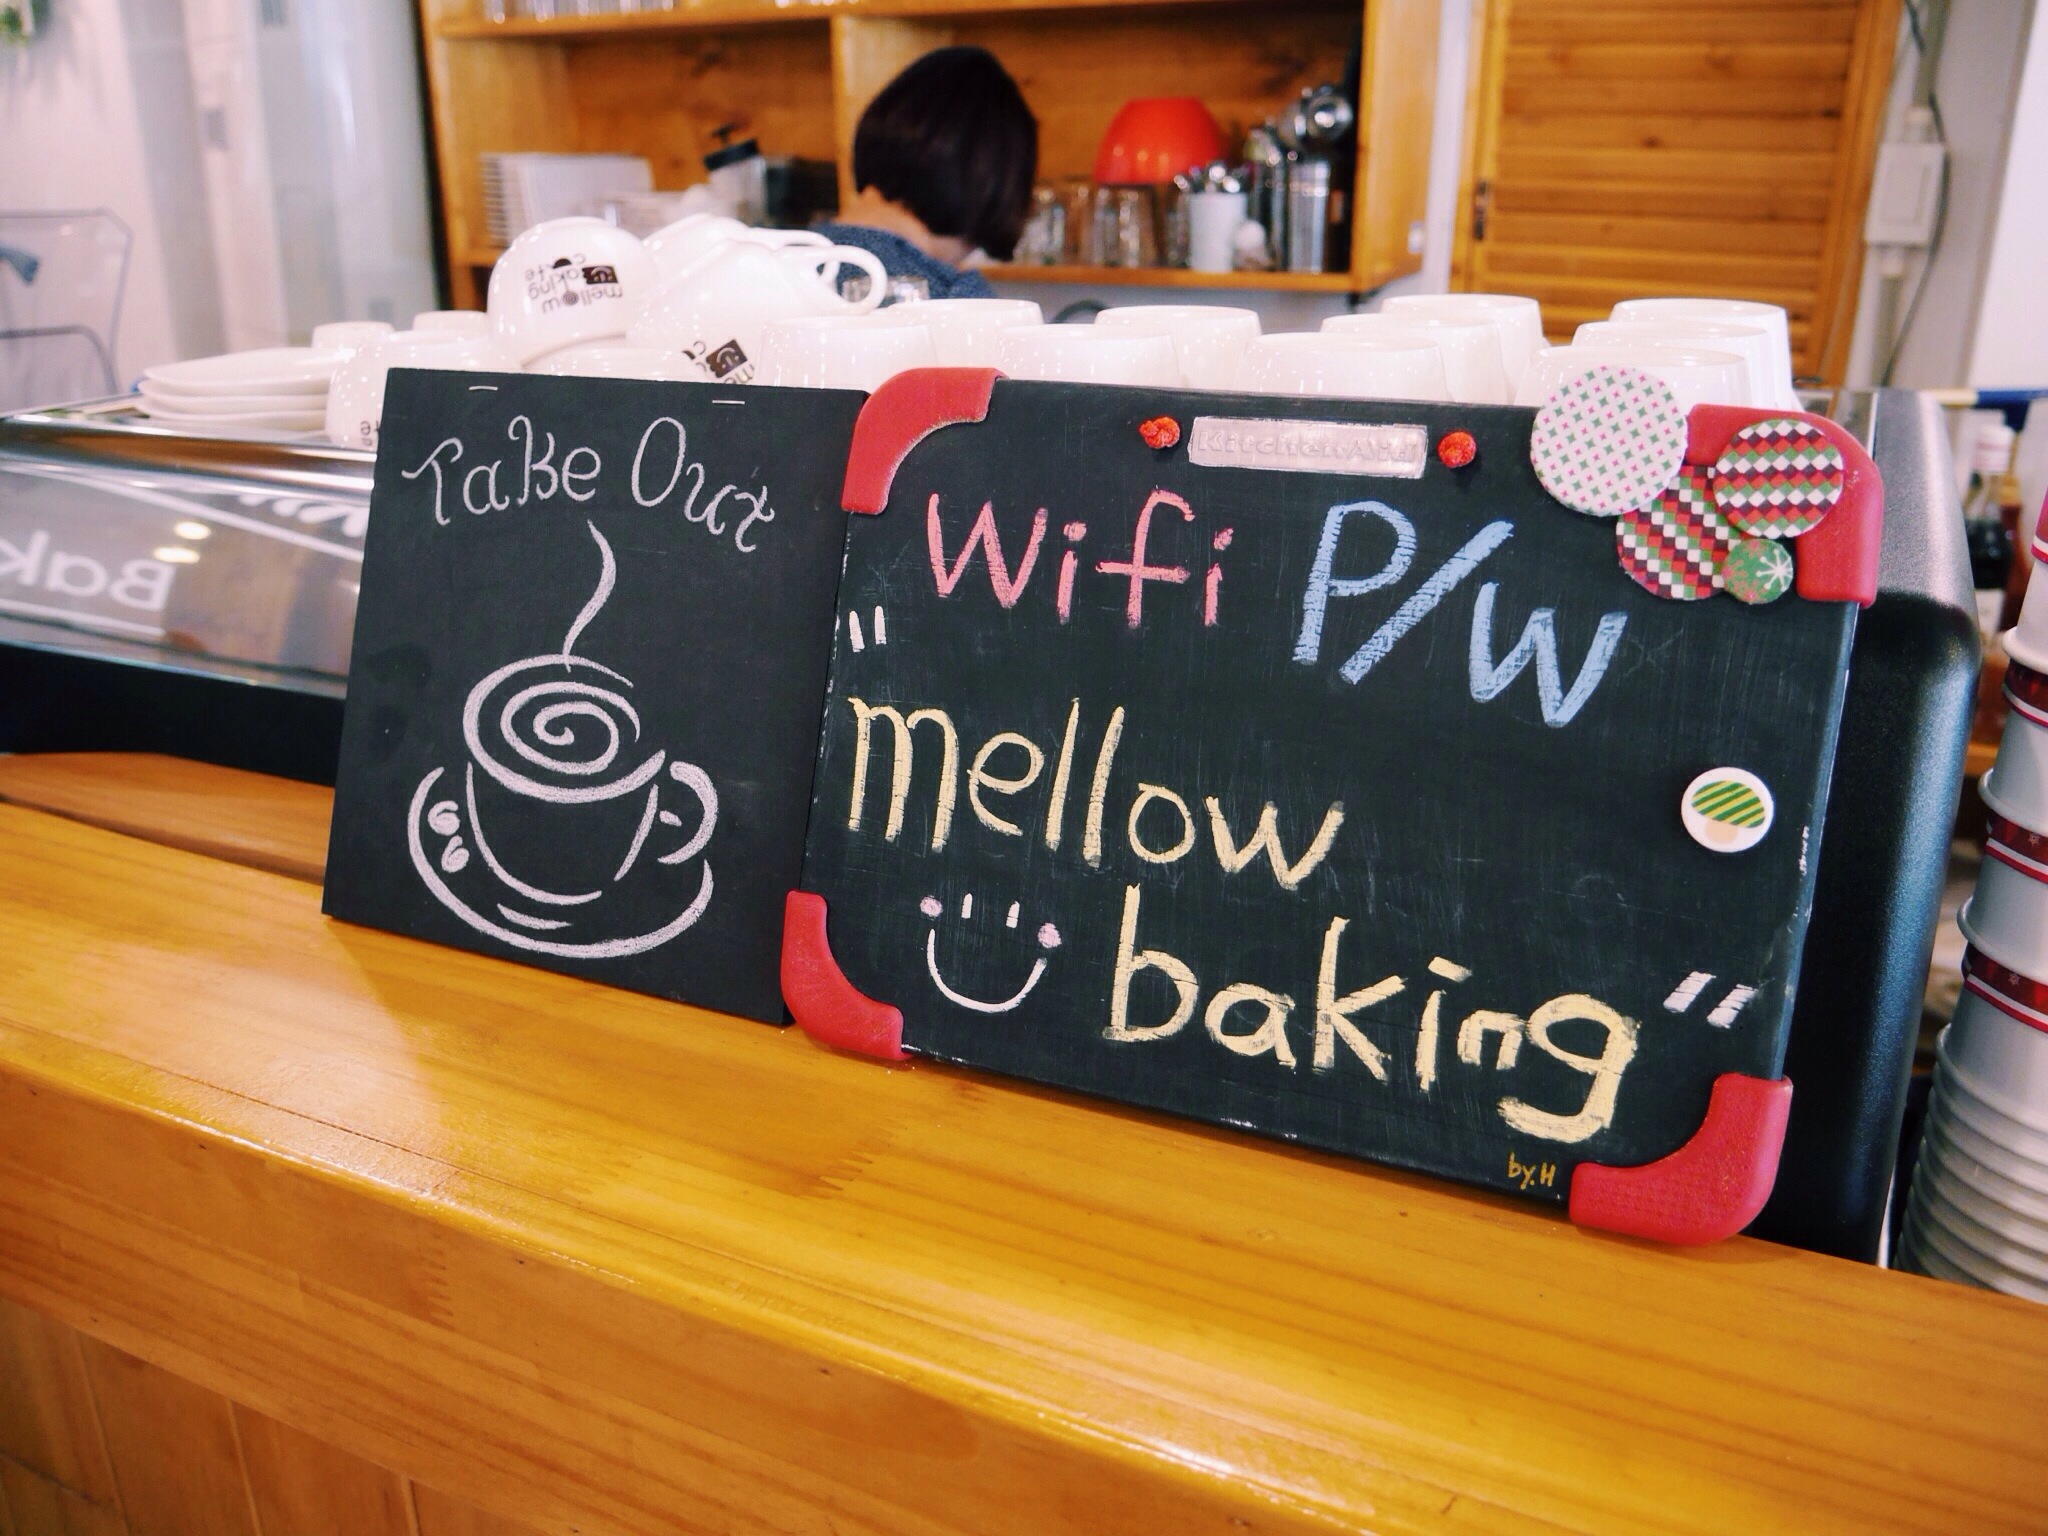 Take Out
KitchenAid
Wifi P/W
"mellow
baking"
by.H
mellow
baking
cafe
Bak